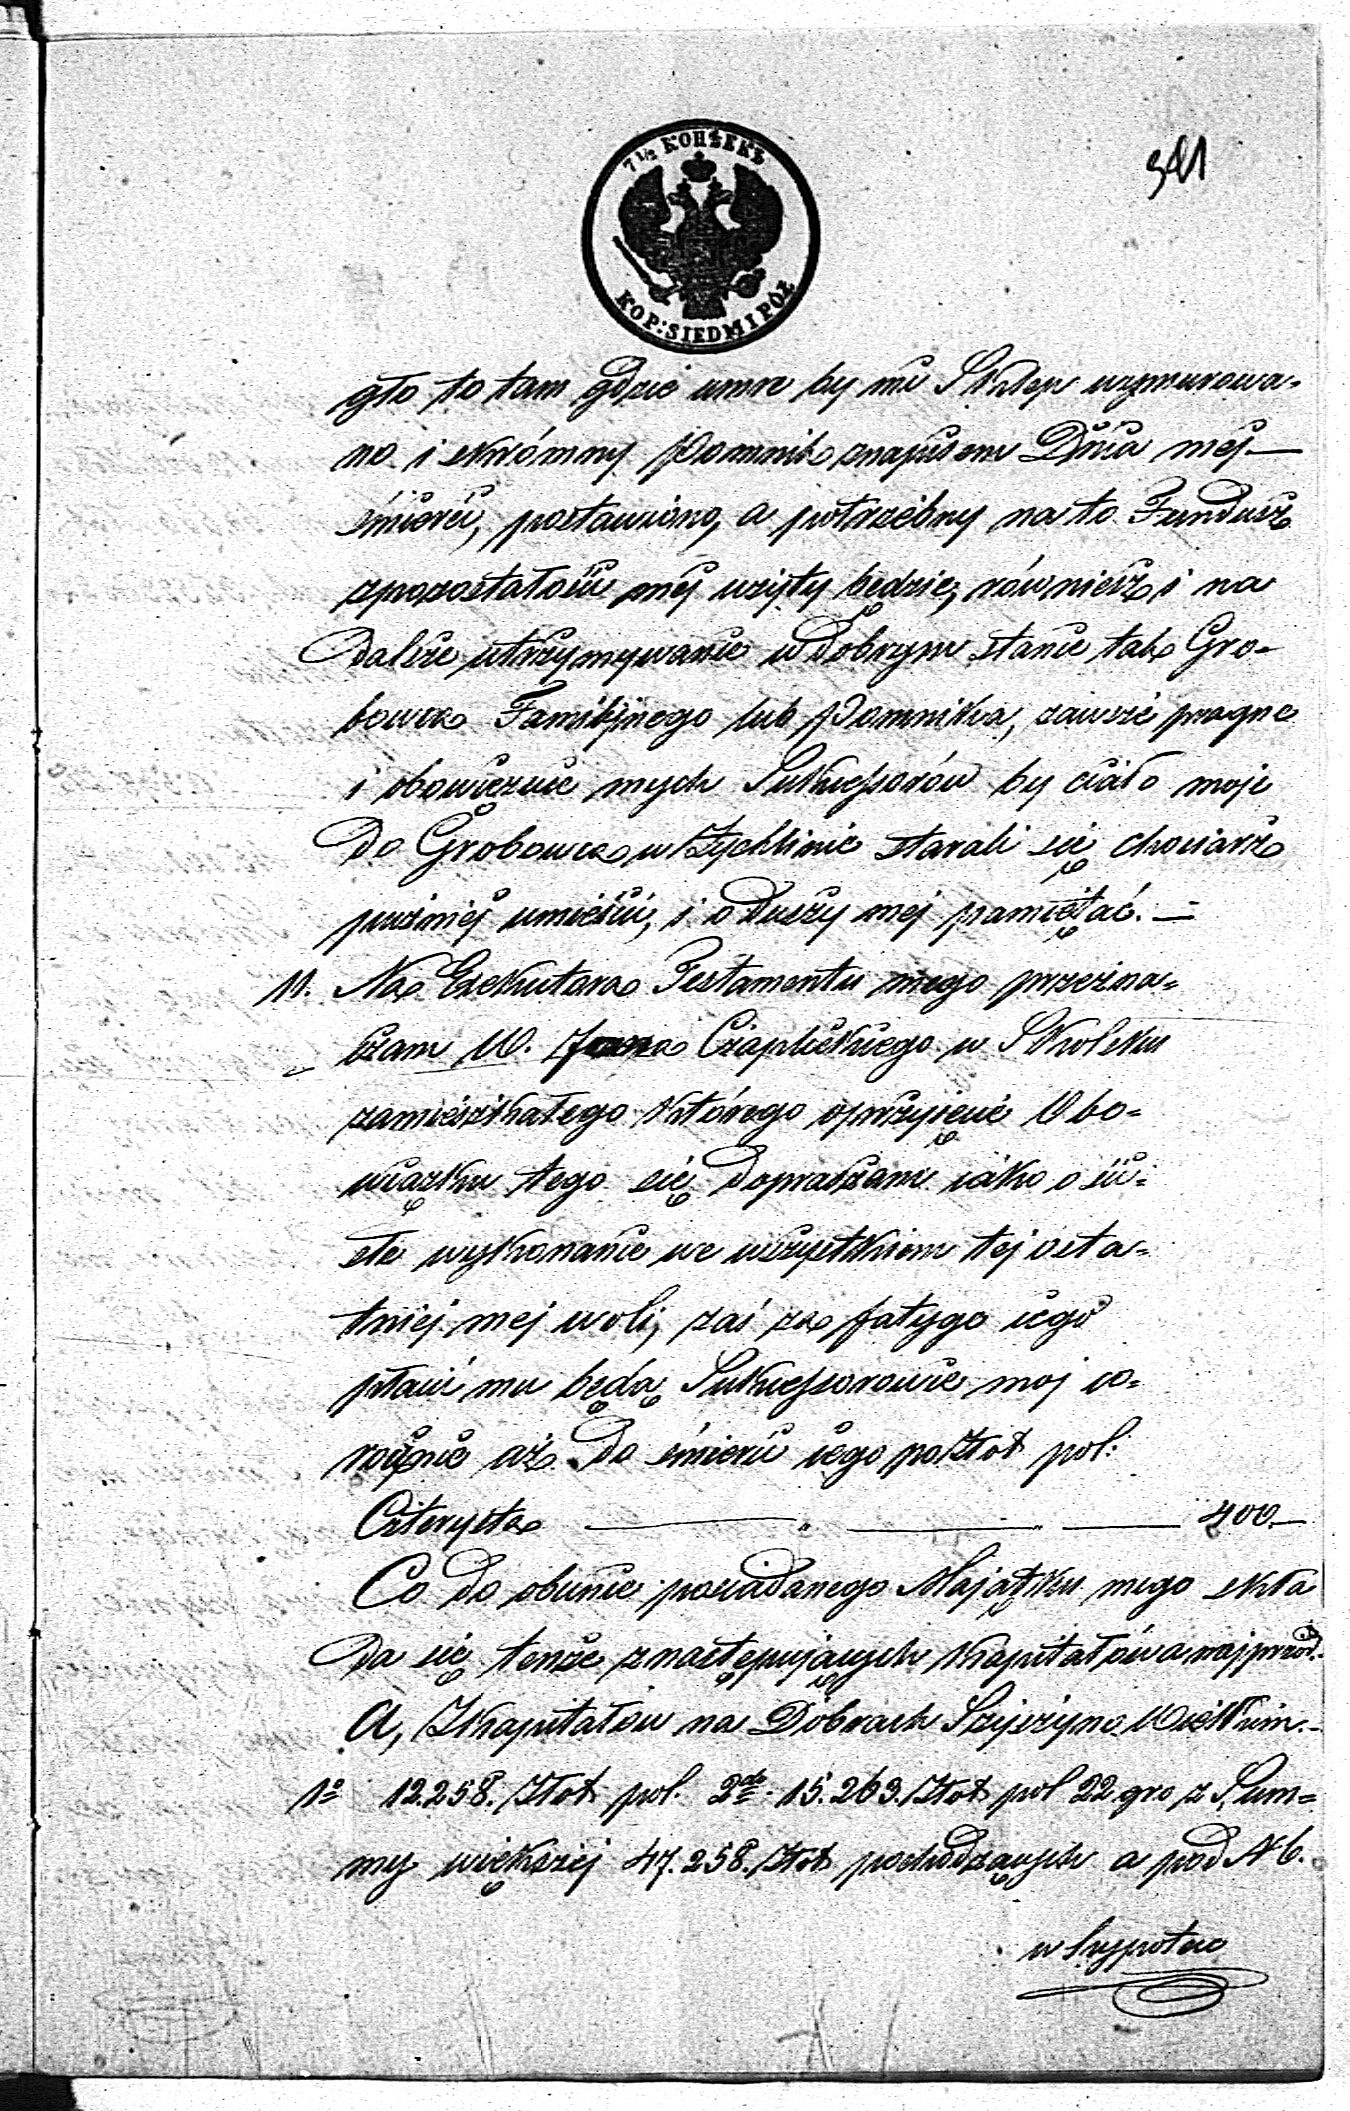 7 1/2 КОПѢЕКЪ
KOP: SIEDM I PÓŁ
341
gło to tam gdzie umre by mi Sklep wymurowa-
no i skrómny Pomnik z napisem Dnia mej —
śmierci, postawiono, a potrzebny na to Fundusz
z pozostałości mej użyty będzie, równiesz i na
dalsze utrzymywanie w dobrym stanie tak Gro-
bowca Familijnego lub Pomnika, zawsze pragnę
i obowięzuie mych Sukcessorów by ciało moje
do Grobowca w Żychlinie starali się chociarz
puźniej umieścić, i o duszy mej pamiętać. —
11. Na Exekutora Testamentu mego przezna-
czam W. Czaplickiego w
zamieszkałego którego o przyięcie Obo-
wiązku tego się dopraszam iako o ści-
słe wykonanie we wszystkiem tej osta-
tniej mej woli, zaś za fatygę iego
płacić mu będą Sukcessorowie moj co-
rocznie aż do śmierci iego po Złot pol:
Czterysta — " — " — 400 —
Co do obecnie posiadanego Majątku mego skła
da się tenże z następujących Kapitałów a najprzód.
A, Z Kapitałów na Dobrach
1º 12.258. Złot pol. 2do 15.263. Złot pol 22 gro z Sum-
my większej 47.258. Złot pochodzących a pod N 6.
w Hypotece